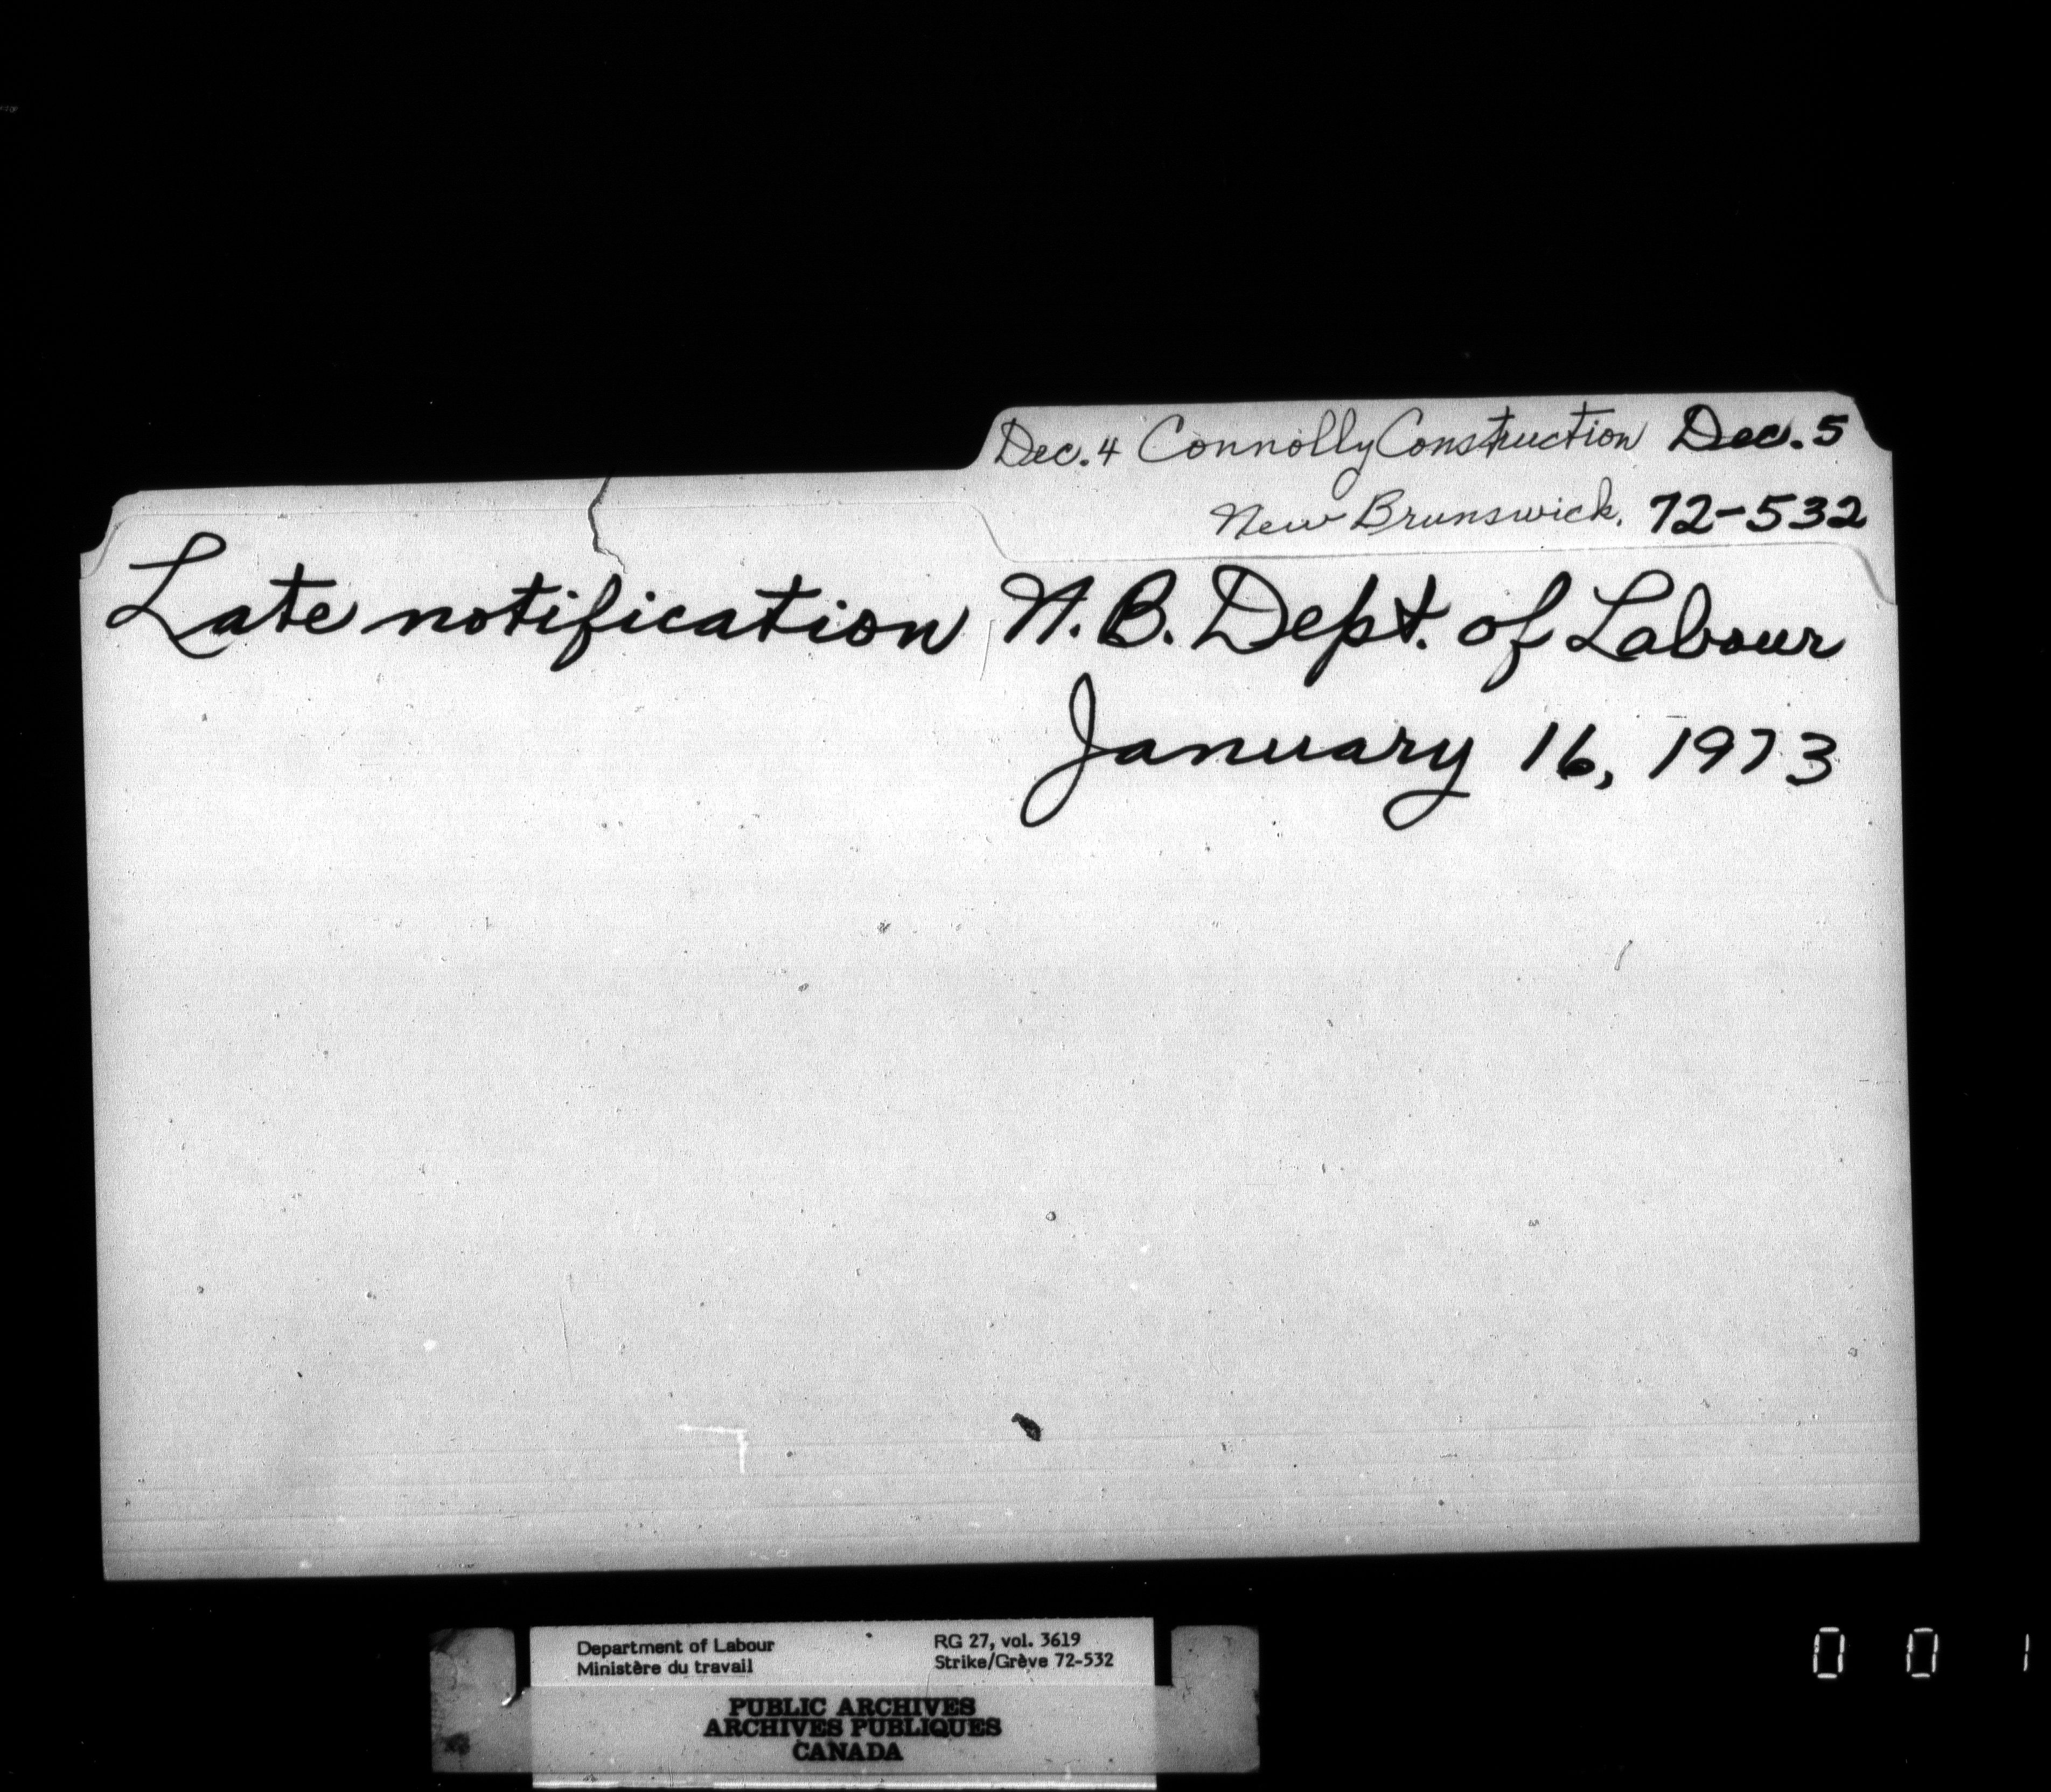 Dec. 4 Connolly Construction Dec. 5
New Brunswick. 72-532
Late notification N.B. Dept. of Labour
January 16, 1973
Department of Labour RG 27, vol. 3619
Ministère du travail Strike/Grève 72-532
PUBLIC ARCHIVES
ARCHIVES PUBLIQUES
CANADA
0 0 1